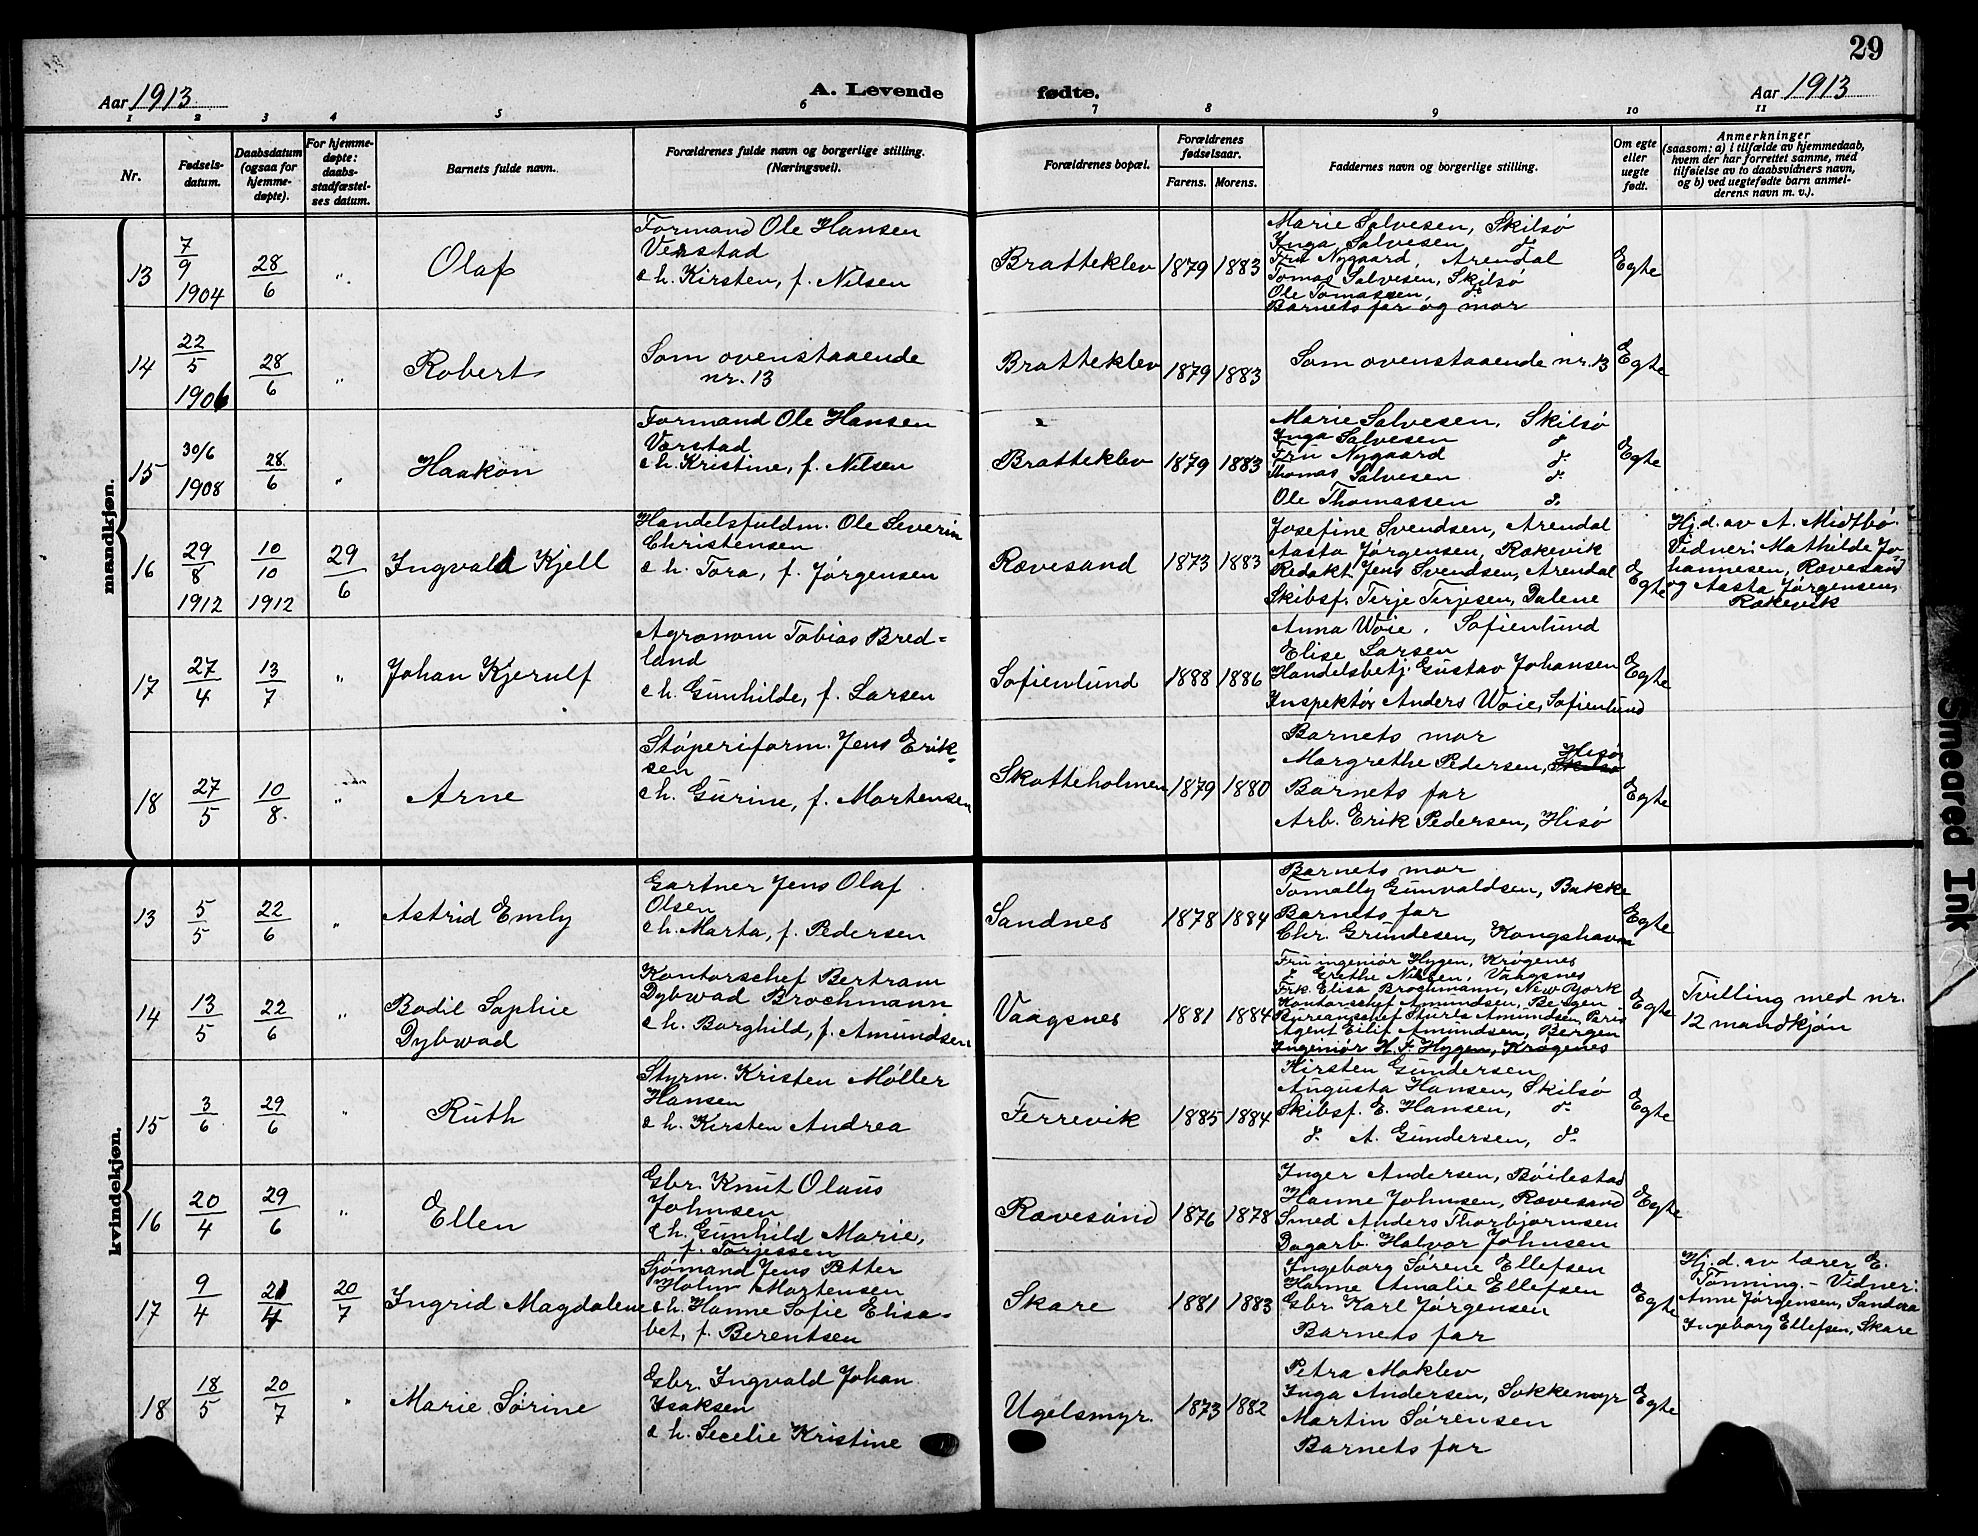 29
Aar 1913. A. Levende fødte. Aar 1913
1 2 3 4 5 6 7 8 9 10 11
Nr. Fødsels-datum. Daabsdatum (ogsaa for hjemme-døpte). For hjemme-døpte: daabs-stadfæstel-ses datum. Barnets fulde navn. Forældrenes fulde navn og borgerlige stilling. (Næringsvei). Forældrenes bopæl. Forældrenes fødselsaar. Farens. Morens. Faddernes navn og borgerlige stilling. Om egte eller uegte født. Anmerkninger
(saasom: a) i tilfælde av hjemmedaab,
hvem der har forrettet samme, med
tilføielse av to daabsvidners navn,
og b) ved uegtefødte barn anmel-
derens navn m. v.).
mandkjøn.
13 7/9 1904 28/6 „ Olaf
Formand Ole Hansen
Verstad
e h. Kirsten, f. Nilsen
Bratteklev 1879 1883
Marie Salvesen, Skilsø
Inga Salvesen d.
Fru Nygaard, Arendal
Tomas Salvesen, Skilsø
Ole Tomassen, d.
Barnets far og mor
Egte
14 22/5 1906 28/6 „ Robert
Som ovenstaaende
nr. 13
Bratteklev 1879 1883
Som ovenstaaende nr. 13
Egte
15 30/6 1908 28/6 „ Haakon
Formand Ole Hansen
Værstad
e h. Kristine, f. Nilsen
Bratteklev 1879 1883
Marie Salvesen, Skilsø
Inga Salvesen d.
Fru Nygaard d.
Thomas Salvesen d.
Ole Thomassen d.
Egte
16 29/8 1912 10/10 1912 29/6 Ingvald Kjell
Handelsfuldm. Ole Severin
Christensen
e h. Tora, f. Jørgensen
Rævesand 1873 1883
Josefine Svendsen, Arendal
Aasta Jørgensen, Rækevik
Redakt. Jens Svendsen, Arendal
Skibsf. Terje Terjesen, Dalene
Egte
Hj.d. av A. Midtbø.
Vidner: Mathilde Jo-
hannesen, Rævesand
og Aasta Jørgensen,
Rækevik
17 27/4 13/7 „ Johan Kjerulf
Agronom Tobias Bred=
land
e h. Gunhilde, f. Larsen
Sofienlund 1888 1886
Anna Woie, Sofienlund
Elise Larsen
Handelsbetj. Gustav Johansen
Inspektør Anders Woie, Sofienlund
Egte
18 27/5 10/8. „ Arne
Støperiform. Jens Erik-
sen
e h. Gurine, f. Mortensen
Skatteholmen 1879 1880
Barnets mor
Margrethe Pedersen, Hisø
Barnets far
Arb. Erik Pedersen, Hisø
Egte
kvindekjøn.
13 5/5 22/6 „ Astrid Emly
Gartner Jens Olaf
Olsen
e h. Marta, f. Pedersen
Sandnes 1878 1884
Barnets mor
Tomally Gunvaldsen, Bakke
Barnets far
Chr. Grundesen, Kongshavn
Egte
14 13/5 22/6 „ Bodil Sophie
Dybwad
Kontorschef Bertram
Dybwad Brochmann
e h. Borghild, f. Amundsen
Vaagsnes 1881 1884
Fru ingeniør Hygen, Krøgenes
d. Grethe Nilsen, Vaagsnes
Frk. Elisa Brochmann, New York
Kontorschef Amundsen, Bergen
Bureauschef Sturle Amundsen,
Agent Eilif Amundsen, Bergen
Ingeniør H. F. Hygen, Krøgenes
Egte
Tvilling med nr.
12 mandkjøn
15 3/6 29/6 „ Ruth
Styrm. Kristen Møller
Hansen
e h. Kirsten Andrea
Ferrevik 1885 1884
Kirsten Gundersen
Augusta Hansen, Skilsø
Skibsf. E. Hansen, d.
d. A. Gundersen, d.
Egte
16 20/4 29/6 „ Ellen
Gbr. Knut Olaus
Johnsen
e h. Gunhild Marie,
f. Torjessen
Rævesand 1876 1878
Inger Andersen, Bøilestad
Hanne Johnsen, Rævesand
Smed Anders Thorbjørnsen
Dagarb. Halvor Johnsen
Egte
17 9/4 21/4 20/7 Ingrid Magdalene
Sjømand Jens Petter
Holm Mortensen
e h. Hanne Sofie Elisa-
bet, f. Berentsen
Skare 1881 1883
Ingeborg Sørene Ellefsen
Hanne Amalie Ellefsen
Gbr. Karl Jørgensen
Barnets far
Egte
Hj.d. av lærer E.
Tønning. - Vidner:
Anne Jørgensen,
Ingeborg Ellefsen, Skare
18 18/5 20/7 „ Marie Sørine
Gbr. Ingvald Johan
Isaksen
e h. Secelie Kristine
Ugelsmyr. 1873 1882
Petra Moklev
Inga Andersen, Sokkemyr
Martin Sørensen
Barnets far
Egte
Smeared Ink